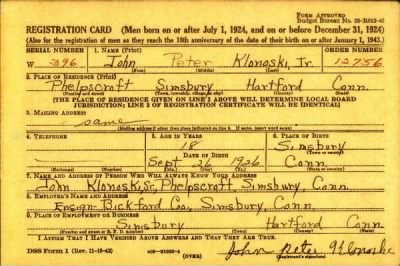 Form Approved
Budget Bureau No. 33-R012-43
REGISTRATION CARD (Men born on or after July 1, 1924, and on or before December 31, 1924)
(Also for the registration of men as they reach the 18th anniversary of the date of their birth on or after January 1, 1943.)
SERIAL NUMBER 1. NAME (Print) ORDER NUMBER
W 396 John Peter Klonoski, Jr. 12756
(First) (Middle) (Last)
2. PLACE OF RESIDENCE (Print)
Phelpscroft Simsbury Hartford Conn.
(Number and street) (Town, township, village, or city) (County) (State)
[THE PLACE OF RESIDENCE GIVEN ON LINE 2 ABOVE WILL DETERMINE LOCAL BOARD
JURISDICTION; LINE 2 OF REGISTRATION CERTIFICATE WILL BE IDENTICAL]
3. MAILING ADDRESS
same
[Mailing address if other than place indicated on line 2. If same, insert word same]
4. TELEPHONE 5. AGE IN YEARS 6. PLACE OF BIRTH
18 Simsbury
DATE OF BIRTH (Town or county)
Sept 26 1926 Conn.
(Mo.) (Day) (Yr.) (State or country)
7. NAME AND ADDRESS OF PERSON WHO WILL ALWAYS KNOW YOUR ADDRESS
John Klonoski, Sr., Phelpscroft, Simsbury, Conn.
8. EMPLOYER'S NAME AND ADDRESS
Ensign-Bickford Co., Simsbury, Conn.
9. PLACE OF EMPLOYMENT OR BUSINESS
Simsbury Hartford Conn.
(Number and street or R. F. D. number) (Town) (County) (State)
I AFFIRM THAT I HAVE VERIFIED ABOVE ANSWERS AND THAT THEY ARE TRUE.
DSS Form 1 (Rev. 11-16-43) (OVER) John Peter Klonoski
(Registrant's signature)